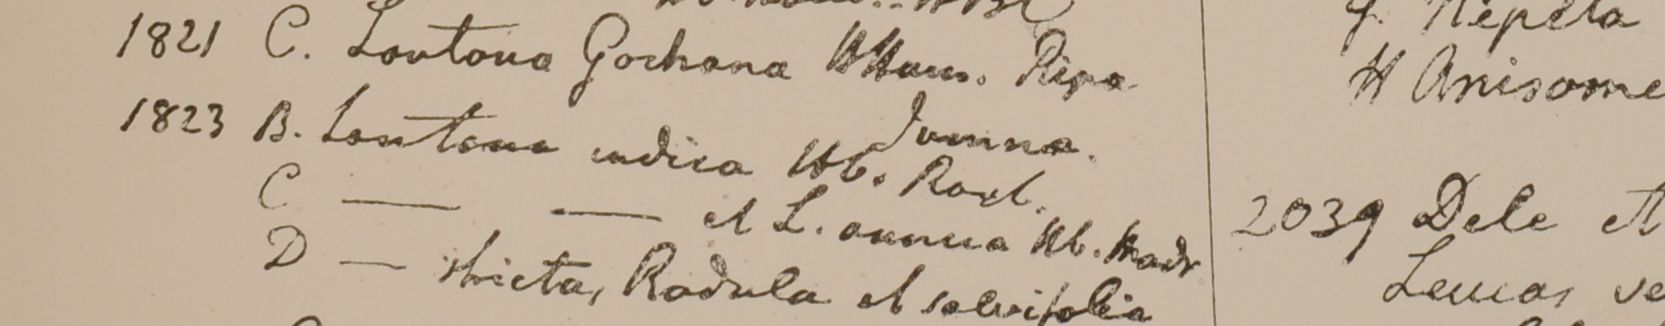 1821 C. Lantana Gorhana HHam. Ripa
Jumna.
1823 B. Lantana indica Hb. Roxb.
C — — et L. annua Hb. Madr
D — stricta, Radula et salvifolia
g. Nepeta
H Anisome
2039 Dele et
Leucas ve